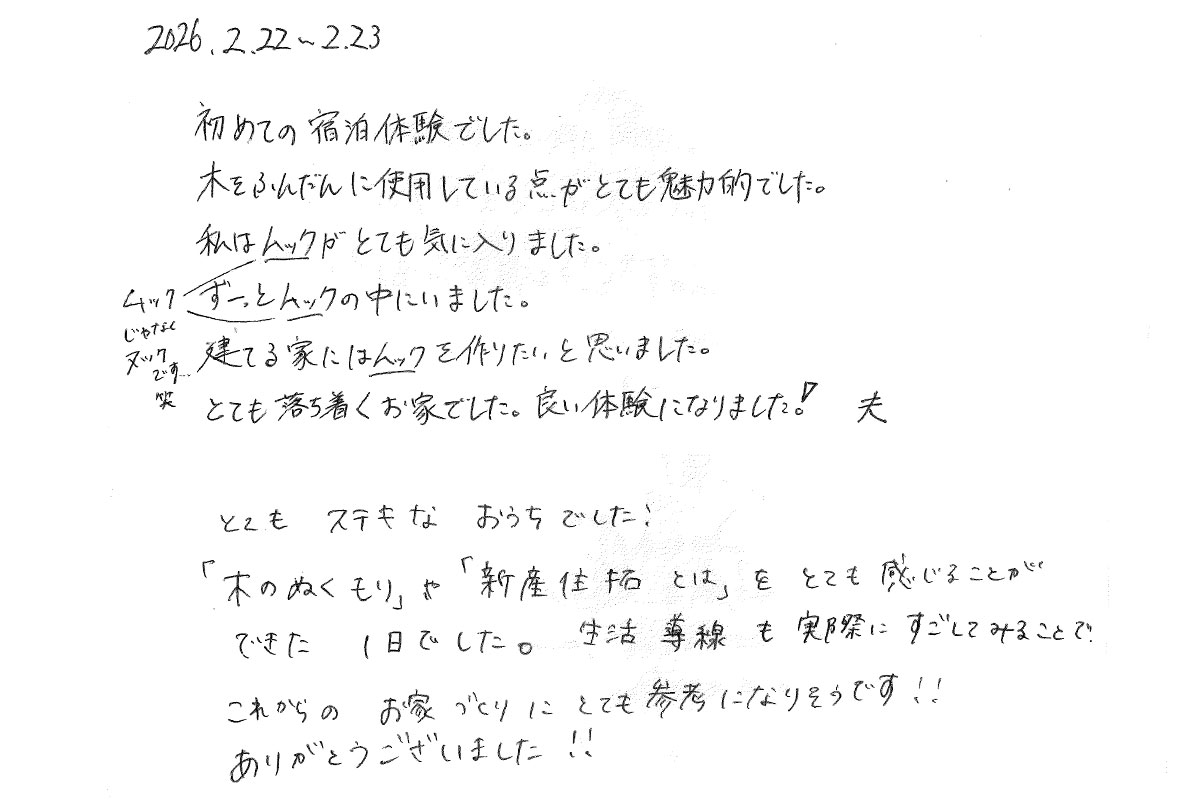 2026.2.22～2.23
初めての宿泊体験でした。
木をふんだんに使用している点がとても魅力的でした。
私はムックがとても気に入りました。
ずーっとムックの中にいました。
建てる家にはムックを作りたいと思いました。
とても落ち着くお家でした。良い体験になりました! 夫
ムック
じゃなく
ヌック
です…
笑
とてもステキな おうちでした!
「木のぬくもり」や「新産住拓とは」をとても感じることが
できた 1日でした。生活導線も実際にすごしてみることで
これからの お家づくりにとても参考になりそうです!!
ありがとうございました!!